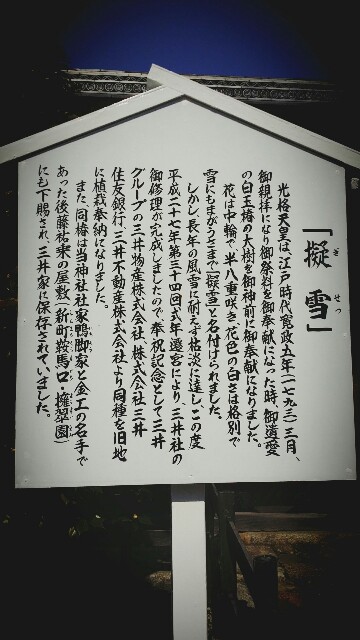 「擬雪」
ぎ せつ
光格天皇は、江戸時代寛政五年(一七九三)三月、
御親拝になり御祭料を御奉献になった時、御遺愛
の白玉椿の大樹を御神前に御奉献になりました。
花は中輪で、半八重咲き、花色の白さは格別で
雪にもまがうさまで「擬雪」と名付けられました。
しかし、長年の風雪に耐え乎枯淡に達し、この度
平成二十七年第三十四回式年遷宮により、三井社の
御修理が完成しましたので奉祝記念として三井
グループの三井物産株式会社、株式会社三井
住友銀行、三井不動産株式会社より同種を旧地
に植栽奉納になりました。
また、同椿は当神社社家鴨脚家と金工の名手で
あった後藤祐乗の屋敷(新町鞍馬口・擁翠園)
にも下賜され、三井家に保存されていました。